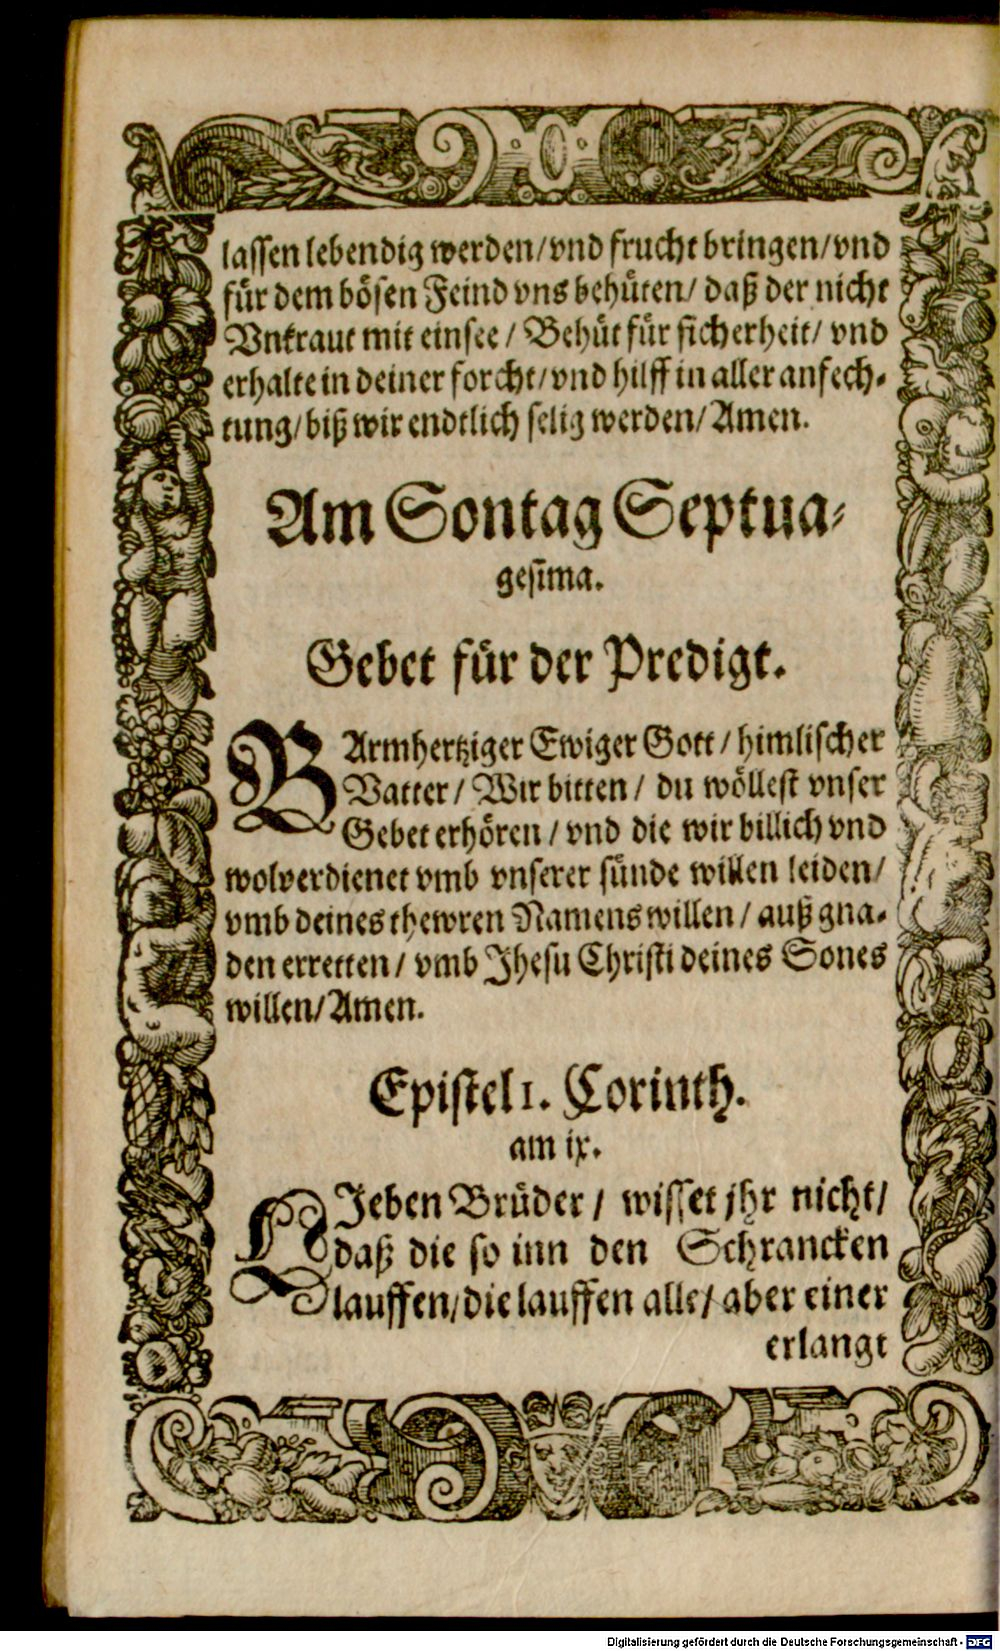 lassen lebendig werden/ vnd frucht bringen/ vnd
für dem bösen Feind vns behüten/ daß der nicht
Vnkraut mit einsee/ Behüt für sicherheit/ vnd
erhalte in deiner forcht/ vnd hilff in aller anfech-
tung/ biß wir endtlich selig werden/ Amen.
Am Sontag Septua-
gesima.
Gebet für der Predigt.
BArmhertziger Ewiger Gott/ himlischer
Vatter/ Wir bitten/ du wöllest vnser
Gebet erhören/ vnd die wir billich vnd
wolverdienet vmb vnserer sünde willen leiden/
vmb deines thewren Namens willen/ auß gna-
den erretten/ vmb Jhesu Christi deines Sones
willen/ Amen.
Epistel 1. Corinth.
am ix.
LJeben Brüder/ wisset jhr nicht/
daß die so inn den Schrancken
lauffen/ die lauffen alle/ aber einer
erlangt
Digitalisierung gefördert durch die Deutsche Forschungsgemeinschaft - DFG